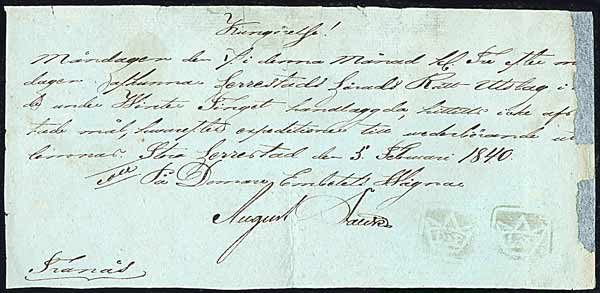 Kungörelse!
Måndagen den 9 i denna Månad kl. Tre efter m
dagen afkunnas Jerrestads Härads Rätts Utslag i
de under Winter Tinget handlagda, hittills icke afs
tade mål, hwarefter expeditioner till wederbörande ut
lemnas. Stora Jerrestad den 5 Februari 1840
På Domare Embetets Wägnar
August
Tranås